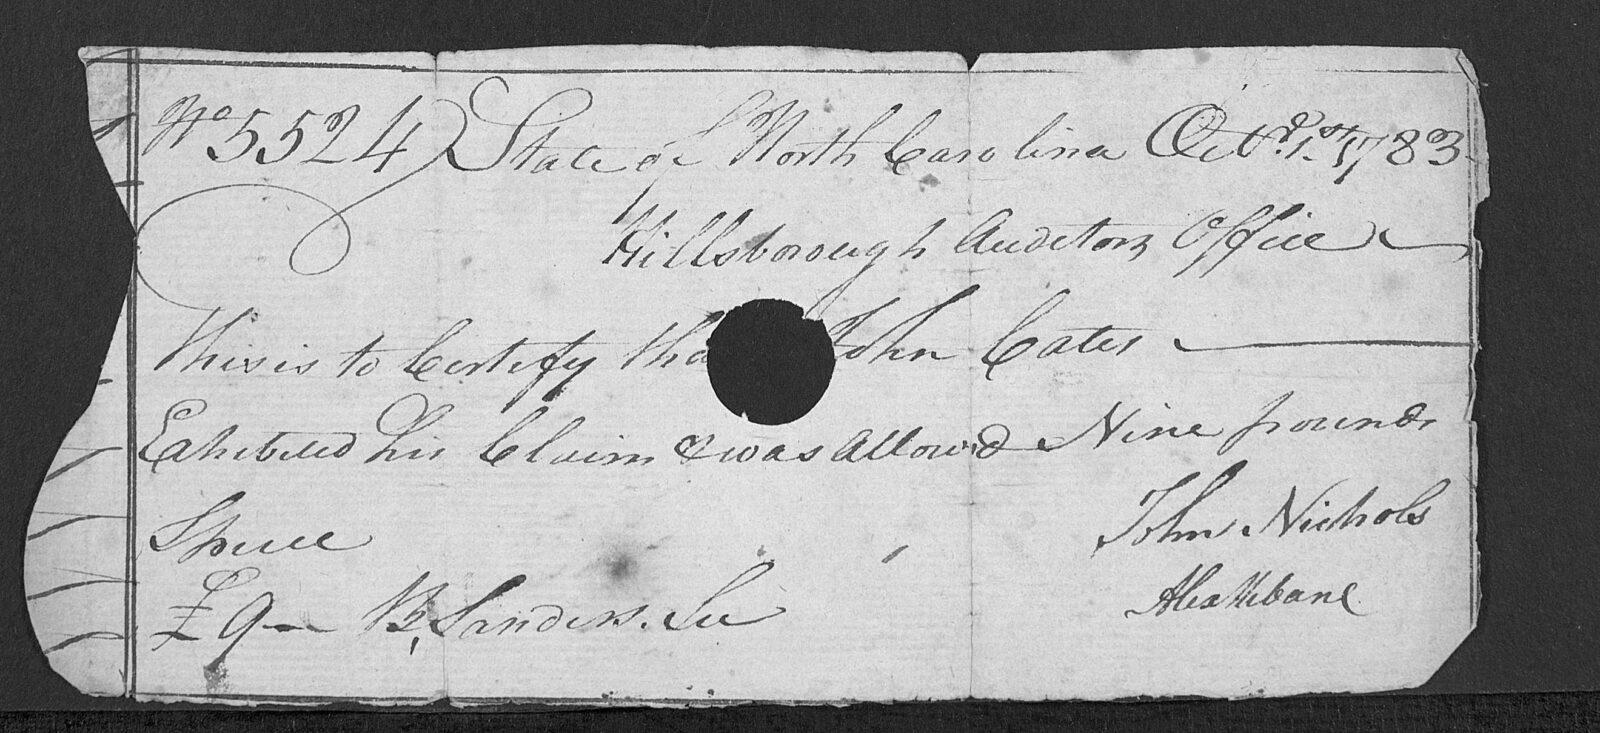 No 5524 State of North Carolina Octr. 1st 1783
Hillsborough Auditors Office
This is to Certify tha John Cates
Exhibited his Claim & was Allowed Nine pounds
Specie
£ 9 B, Sanders. John Nichols
Alex Mebane